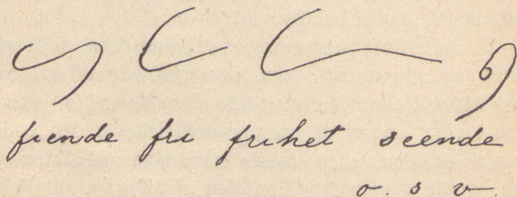 fiende fri frihet seende
o. s. v.